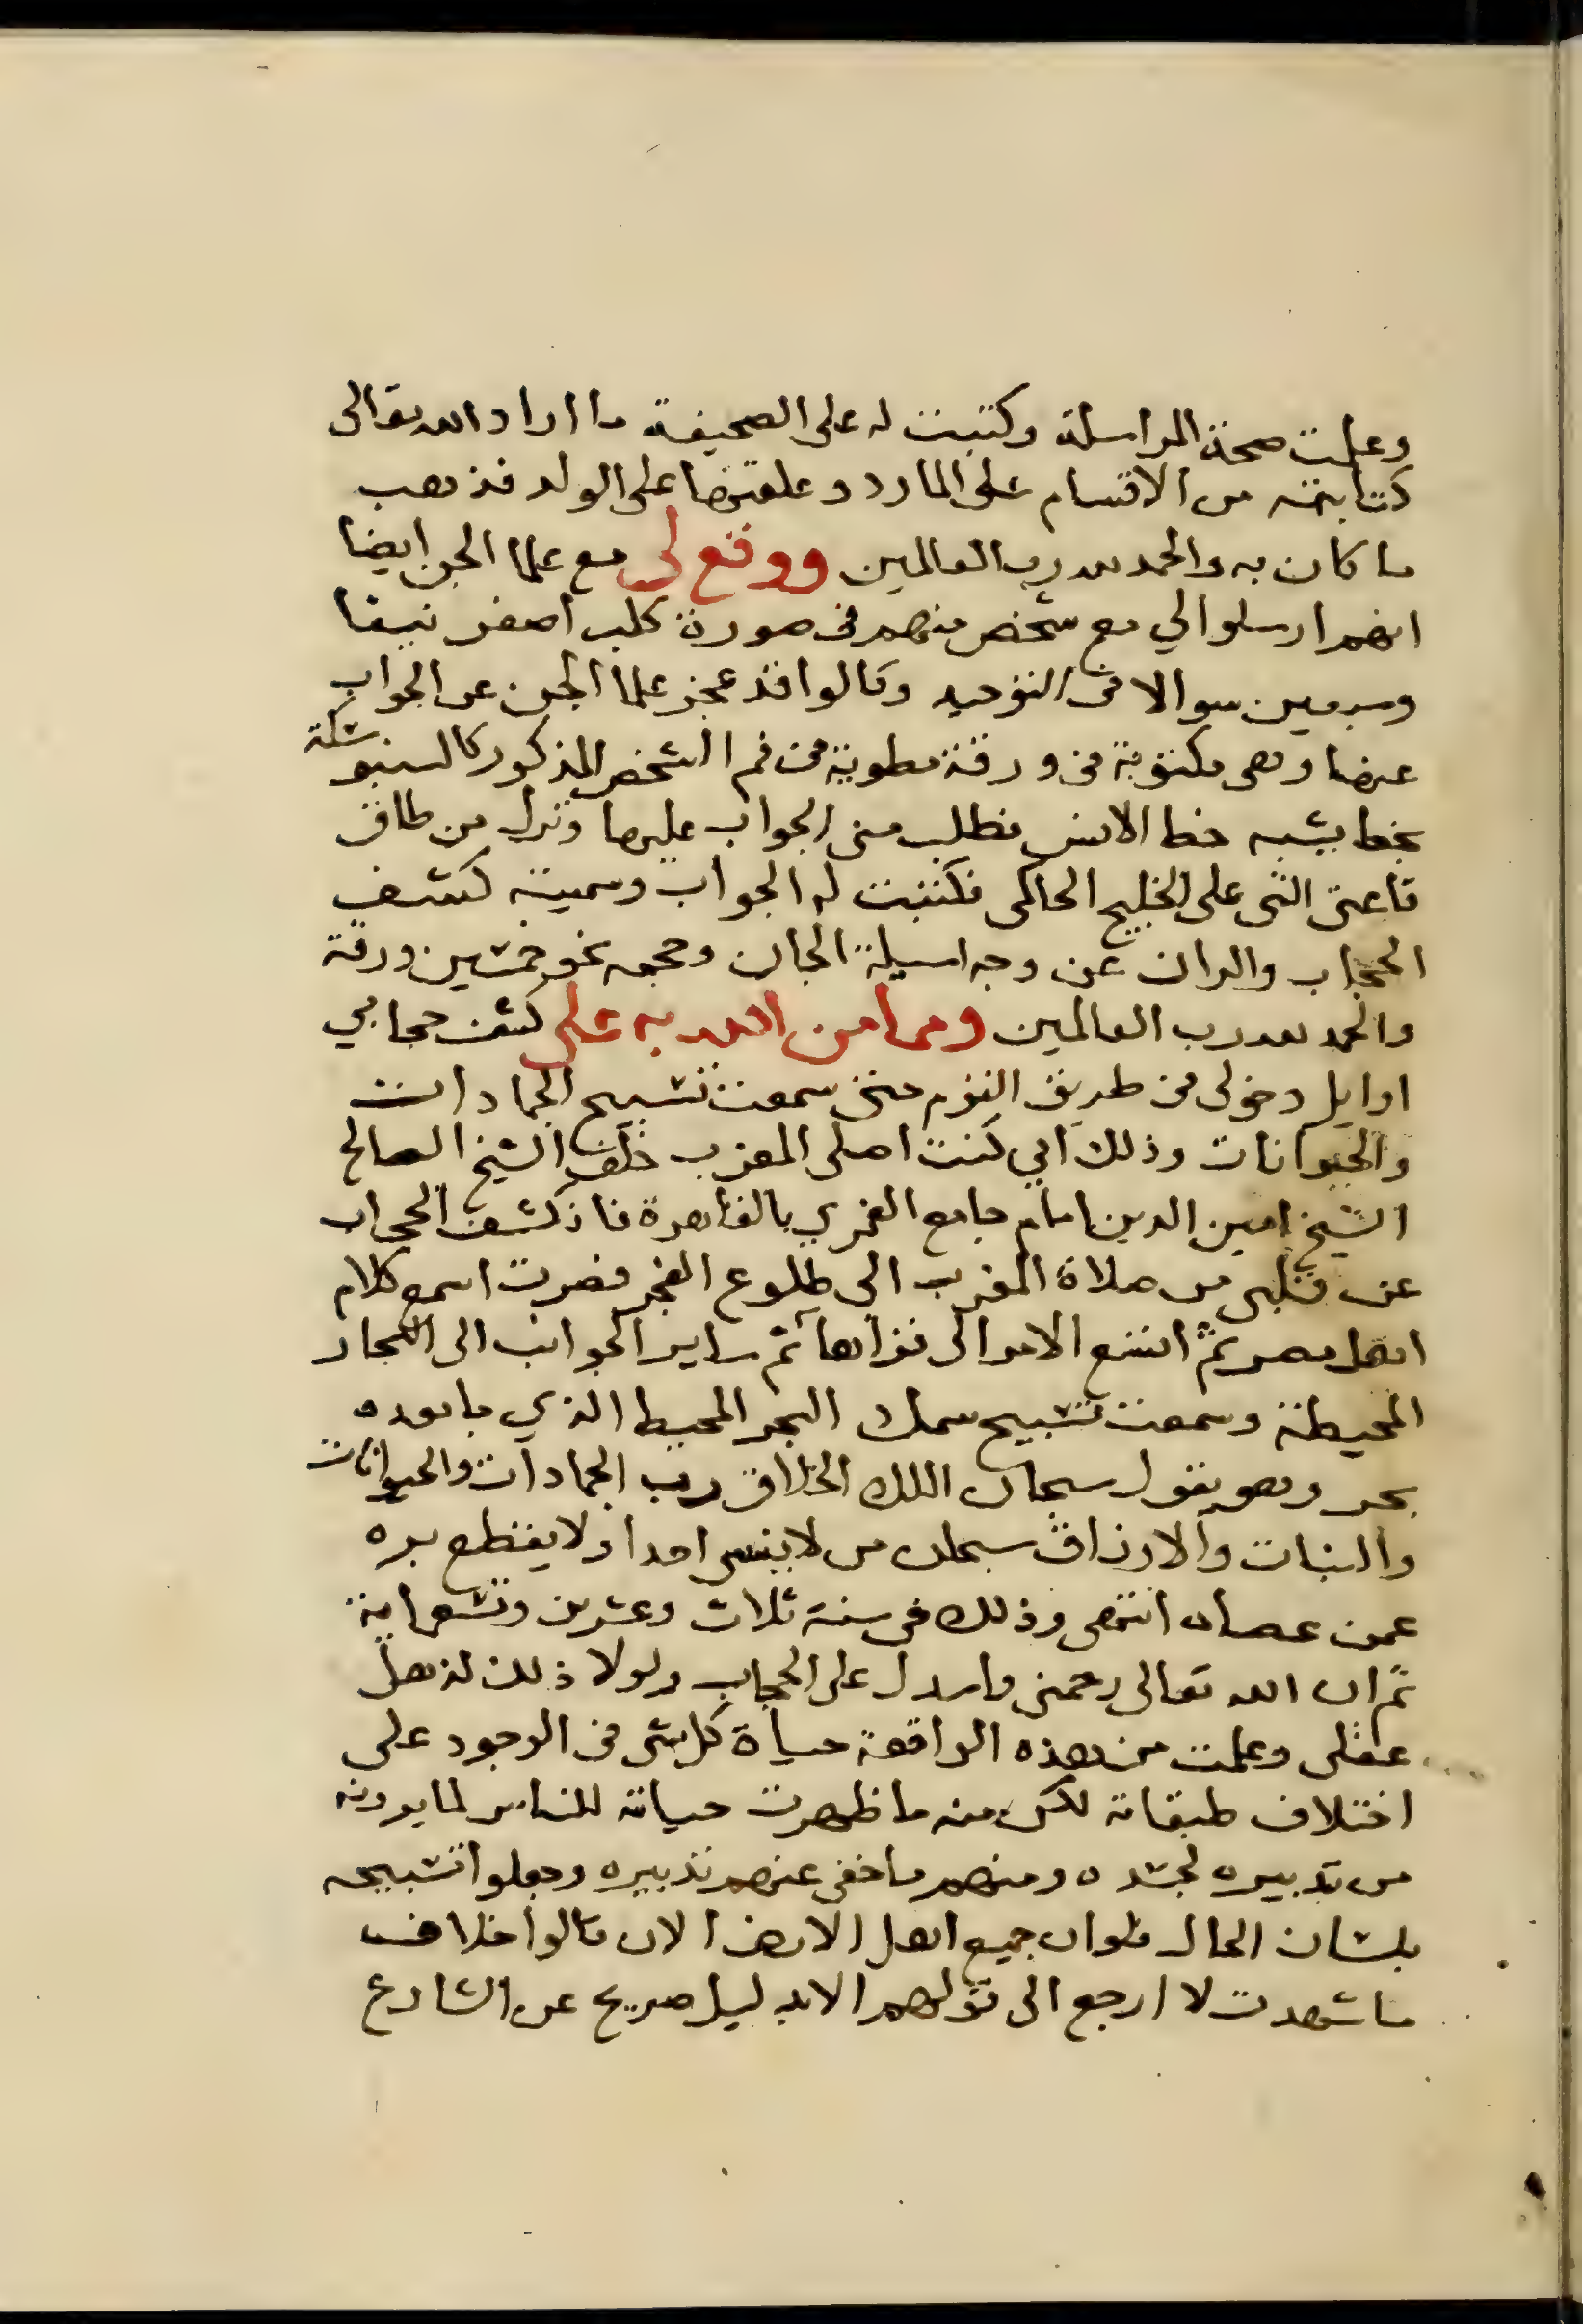 وعلمت صحة المراسلة وكتبت له على الصحيفة ما اراد الله تعالى
كتابته من الاقسام على المارد وعلقتها على الولد فذهب
ما كان به والحمد لله رب العالمين ووقع لى مع علما الجن ايضا
انهم ارسلوا الي مع شخص منهم فى صورة كلب اصفر نيفا
وسبعين سوالا فى التوحيد وقالوا قد عجز علما الجن عن الجواب
عنها وهى مكتوبة فى ورقة مطوية فى فم الشخص المذكور كالسنبوسكة
بخط يشبه خط الانس فطلب منى الجواب عليها ونزل من طاق
قاعتى التى على الخليج الحاكمى فكتبت له الجواب وسميته كشف
الحجاب والران عن وجه اسيلة الجان وحجمه نحو خمسين ورقة
والحمد لله رب العالمين ومما من الله به على كشف حجابي
اوايل دخولى فى طريق القوم حتى سمعت تسبيح الجمادات
والحيوانات وذلك اني كنت اصلى المغرب خلف الشيخ الصالح
الشيخ امين الدين امام جامع الغمري بالقاهرة فانكشف الحجاب
عن قلبى من صلاة المغرب الى طلوع الفجر فصرت اسمع كلام
اهل مصر ثم اتسع الامر الى قراها ثم ساير الجوانب الى البحار
المحيطة وسمعت تسبيح سمك البحر المحيط الذي ما بعده
بحر وهو يقول سبحان الملك الخلاق رب الجمادات والحيوانات
والنبات والارزاق سبحان من لا ينسى احدا ولا يقطع بره
عمن عصاه انتهى وذلك فى سنة ثلاث وعشرين وتسعماية
ثم ان الله تعالى رحمنى واسدل على الحجاب ولولا ذلك لذهل
عقلى وعلمت من هذه الواقعة حياة كل شى فى الوجود على
اختلاف طبقاته لكن منه ما ظهرت حياته للناس لما يرونه
من تدبيره لجسده ومنهم ما خفى عنهم تدبيره وجعلوا تسبيحه
بلسان الحال فلو ان جميع اهل الارض الان قالوا خلاف
ما شهدت لا ارجع الى قولهم الا بدليل صريح عن الشارع